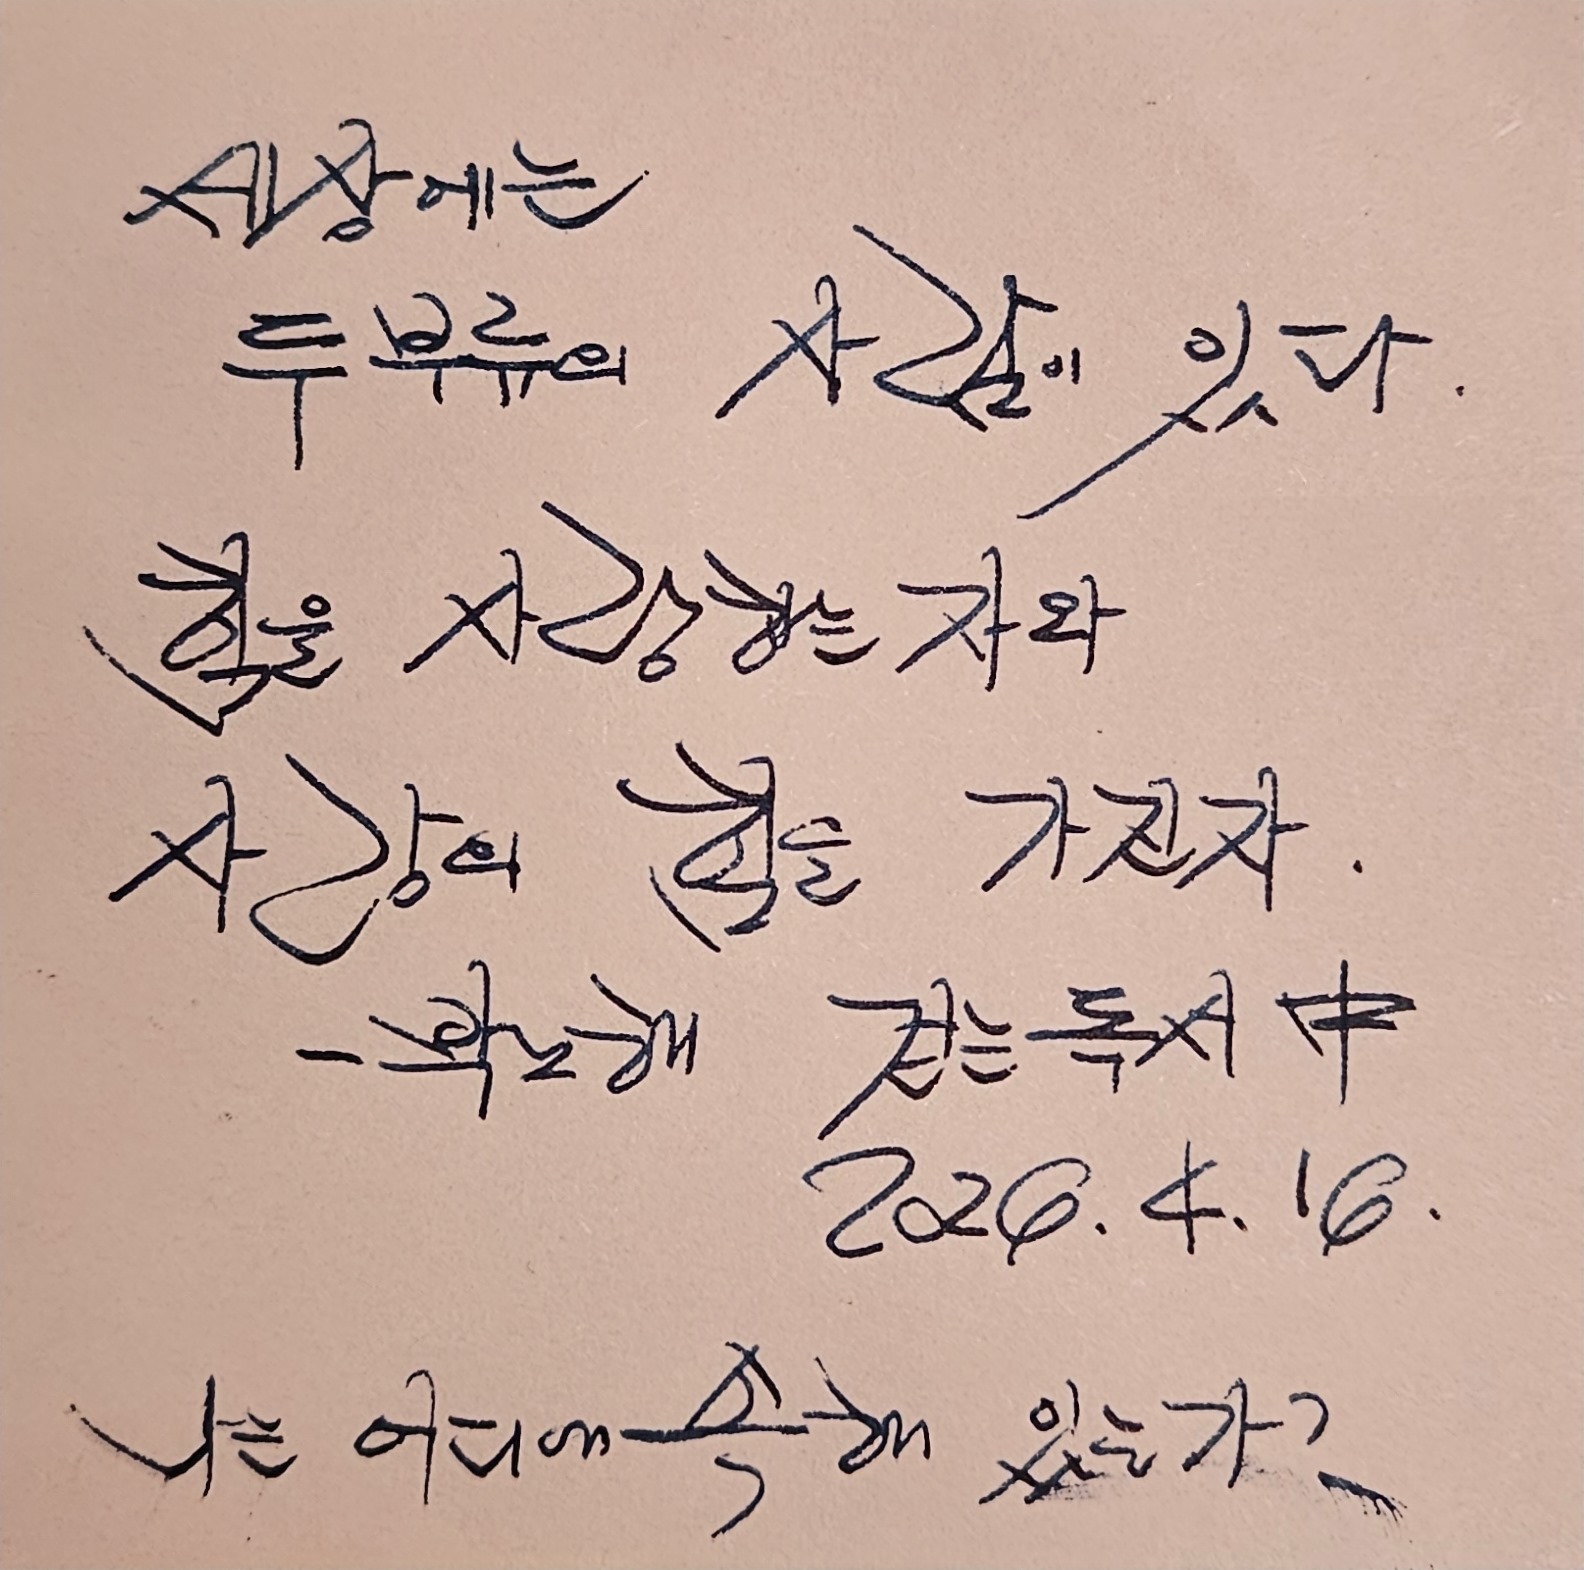 세상에는
두 부류의 사람이 있다.
힘을 사랑하는 자와
사랑의 힘을 가진 자.
전는 독서 中
2026. 4. 16.
나는 어디에 속해 있는가?